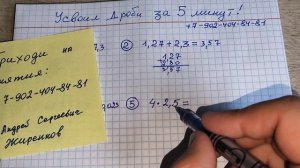 Усвоил Дроби за 5 минут!
+7-902-404-84-81
Приходи на
занятия:
7-902-404-84-81
Андрей Сергеевич
Жиренков
7,3
② 1,27 + 2,3 = 3,57
1,27
2,30
3,57
,023
⑤ 4 · 2,5 =